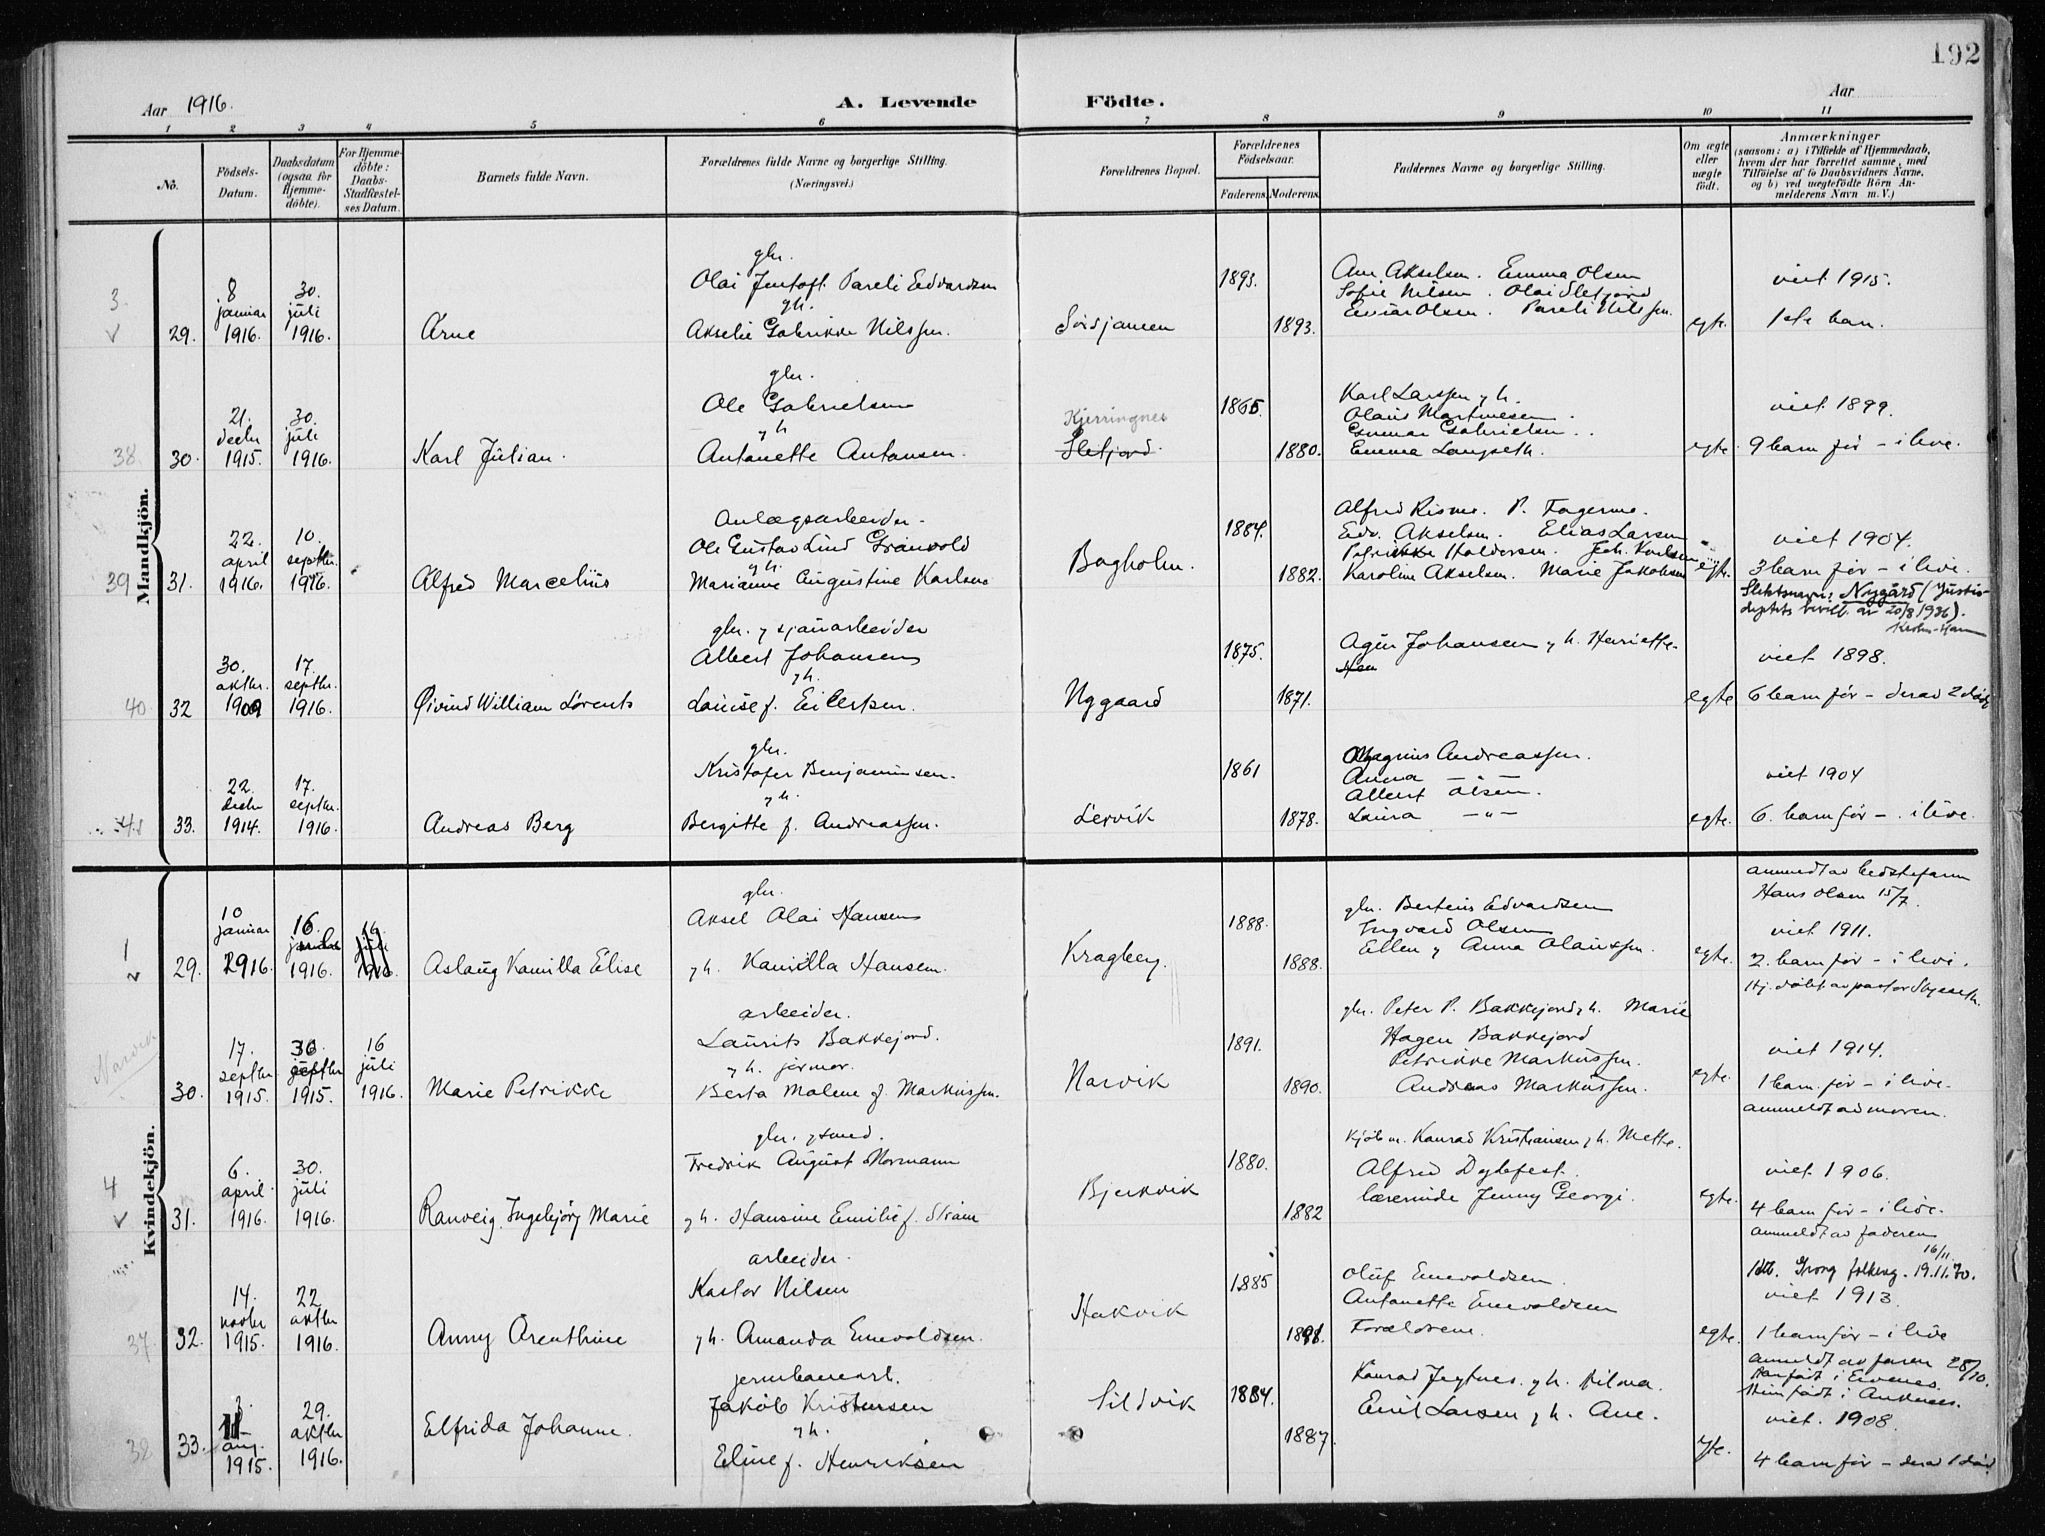 192
Aar 1916.
A. Levende Födte.
Aar
1 2 3 4 5 6 7 8 9 10 11
No.
Födsels-Datum.
Daabsdatum (ogsaa for Hjemme-döbte).
For Hjemme-döbte: Daabs-Stadfæstel-ses Datum.
Barnets fulde Navn.
Forældrenes fulde Navne og borgerlige Stilling.
(Næringsvei.)
Forældrenes Bopæl.
Forældrenes Födselsaar.
Faderens. Moderens.
Faddernes Navne og borgerlige Stilling.
Om ægte eller uægte födt.
Anmærkninger
(saasom: a) i Tilfælde af Hjemmedaab, hvem der har forrettet samme, med Tilföielse af to Daabsvidners Navne, og b) ved uægtefödte Börn An-melderens Navn m. V.)
Mandkjön.
3.
29.
8 januar 1916.
30. juli 1916.
Arne
gbr.
Olai Justoft Pareli Edvardsen
y h.
Akselie Gabrikke Nilssen.
Sördjansen
1893.
1893.
Ane Akselsen. Emma Olsen
Sofie Nilsen. Olai Sletjord
Einar Olsen. Pareli Nilssen.
egte.
viet 1915.
1ste barn.
38.
30.
21. decbr 1915.
30. juli 1916.
Karl Julian.
gbr.
Ole Gabrielsen
y h
Antonette Antonsen.
Kjerringnes
Sletjord.
1865.
1880.
Karl Larssen y h.
Olaus Martinesen.
Gunnar Gabrielsen..
Emma Langseth.
egte
viet 1899.
9 barn för – i live.
39
31.
22. april 1916.
10. septbr. 1916.
Alfred Marcelius
Anlægsarbeider.
Ole Gustav Lind Granvold
y h.
Marianne Augustine Karlsen
Bogholm.
1884.
1882.
Alfred Risme. P. Fagernes.
Edv. Akselsen. Elias Larsen
Petrikke Haldorsen. Joh. Karlsen
Karoline Akselsen. Marie Jakobsen
egte.
viet 1904.
3 barn för – i live.
Slektsnavn: Nygård (Justis-
deptets bevill. av 20/8 1936).
40
32
30. oktbr. 1909
17. septbr. 1916.
Øivind William Lorents
gbr. y sjauarbeider
Albert Johansen
y h.
Louise f. Eilertsen.
Nygaard
1875.
1871.
Agnr Johansen y h. Henriette.
egte
viet 1898.
6 barn för – derav 2 död
41
33.
22. decbr 1914.
17. septbr. 1916.
Andreas Berg
gbr.
Kristofer Benjaminsen.
y h.
Bergitte f. Andreassen.
Lervik
1861
1878.
Magnus Andreassen.
Anna – " –
Albert Olsen.
Laura – " –
egte.
viet 1904
6. barn för – i live.
Kvindekjön.
1
29.
10 januar 1916.
16. juli 1916.
Aslaug Kamilla Elise
gbr.
Aksel Olai Hansen
y h. Kamilla Hansen.
Kragberg.
1888.
1888.
gbr. Berteus Edvardsen
Ingvard Olsen
Ellen y Anna Olaussen.
egte.
anmeldt av bedstefaren
Hans Olsen 15/7.
viet 1911.
2. barn för – i live.
Hj. döbt av pastor Skjeseth.
Narvik
30.
17. septbr 1915.
30. septbr 1915.
16 juli 1916.
Marie Petrikke
arbeider.
Laurits Bakkejord.
y h. jormor.
Berta Malene f Markussen.
Narvik
1891.
1890.
gbr. Peter P. Bakkejord y h. Marie
Hagen Bakkejord
Petrikke Markussen.
Andreas Markussen.
egte.
viet 1914.
1 barn för – i live.
anmeldt av moren.
4
31.
6. april 1916.
30. juli 1916.
Ranveig Ingebjörg Marie
gbr. y smed.
Fredrik August Normann
y h. Hansine Emilie f. Ström
Bjerkvik
1880.
1882
Kjöbm. Konrad Kristiansen y h. Mette.
Alfred Dybfest.
lærerinde Jenny Georgi.
egte.
viet 1906.
4 barn för – i live.
anmeldt av faderen
37
32.
14. novbr 1915.
22 oktbr 1916.
Anny Orenthine
arbeider.
Kastor Nilsen
y h. Amanda Enevoldsen.
Hakvik
1885
1891.
Oluf Enevoldsen.
Antonette Enevoldsen
Forældrene.
egte.
16/11
1 att. Grong folkereg. 19.11.70.
viet 1913.
1 barn för – i live
38
33.
aug. 1915.
29. oktbr 1916.
Elfrida Johanne.
jernbanearb.
Jakob Kristensen
y h.
Eline f. Henriksen
Sildvik
1884.
1887.
Konrad Jegtnes. y h. Hilma.
Emil Larsen y h. Ane.
egte.
anmeldt av faren 28/10.
Han födt i Evenes.
Hun födt i Ankenes.
viet. 1908.
4 barn för – derav 1 död